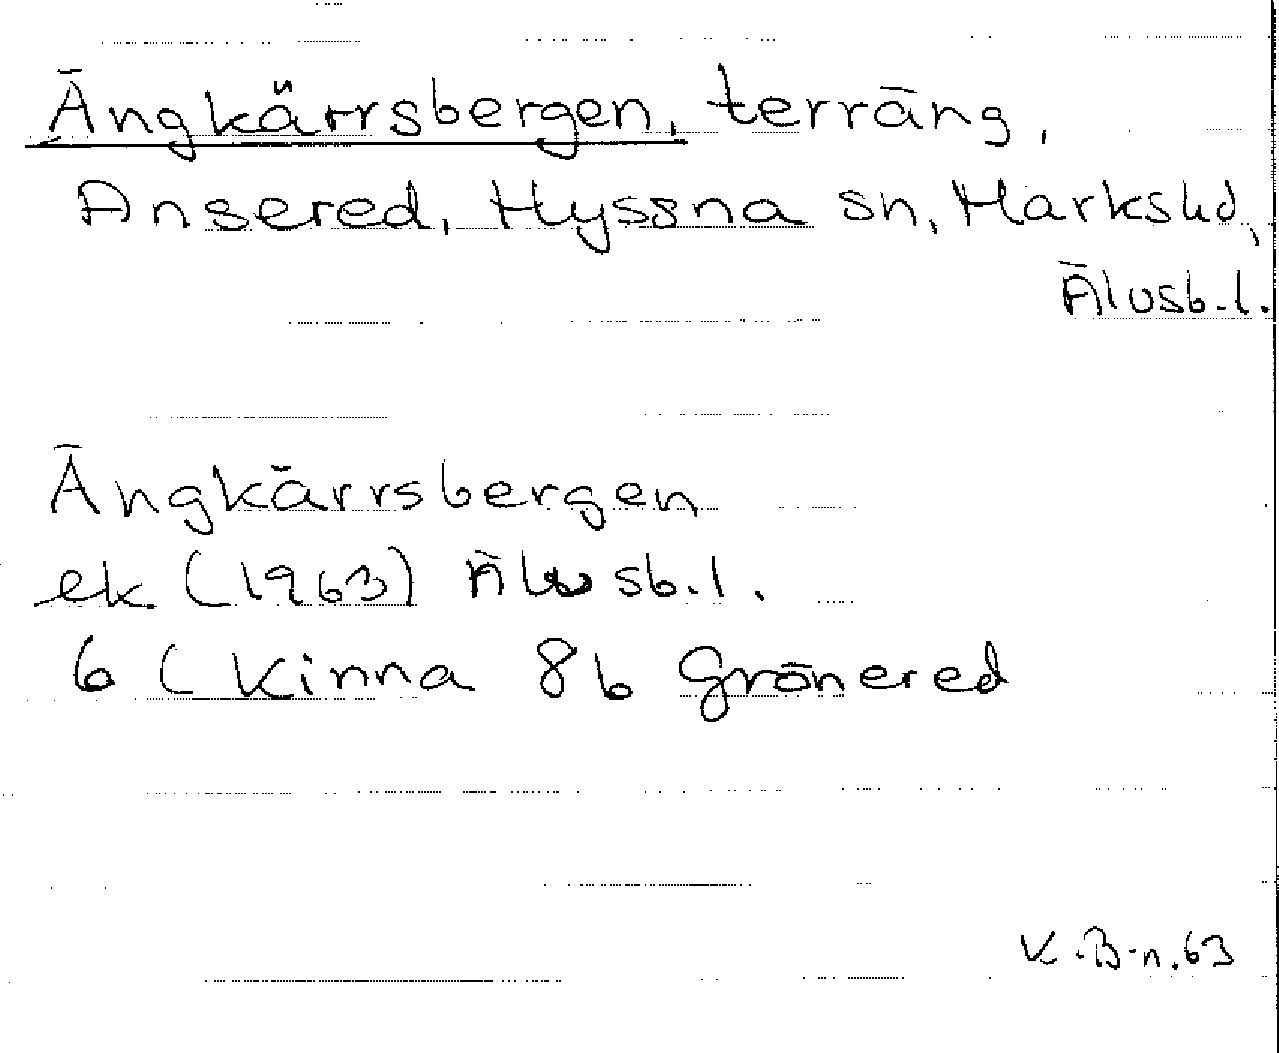 Ängkärrsbergen, terräng,
Ansered, Hyssna sn, Markshd,
Älvsb.l.
Ängkärrsbergen
ek (1963) Älvsb.l.
6 ( Kinna 8b Grönered
K.B-n.63